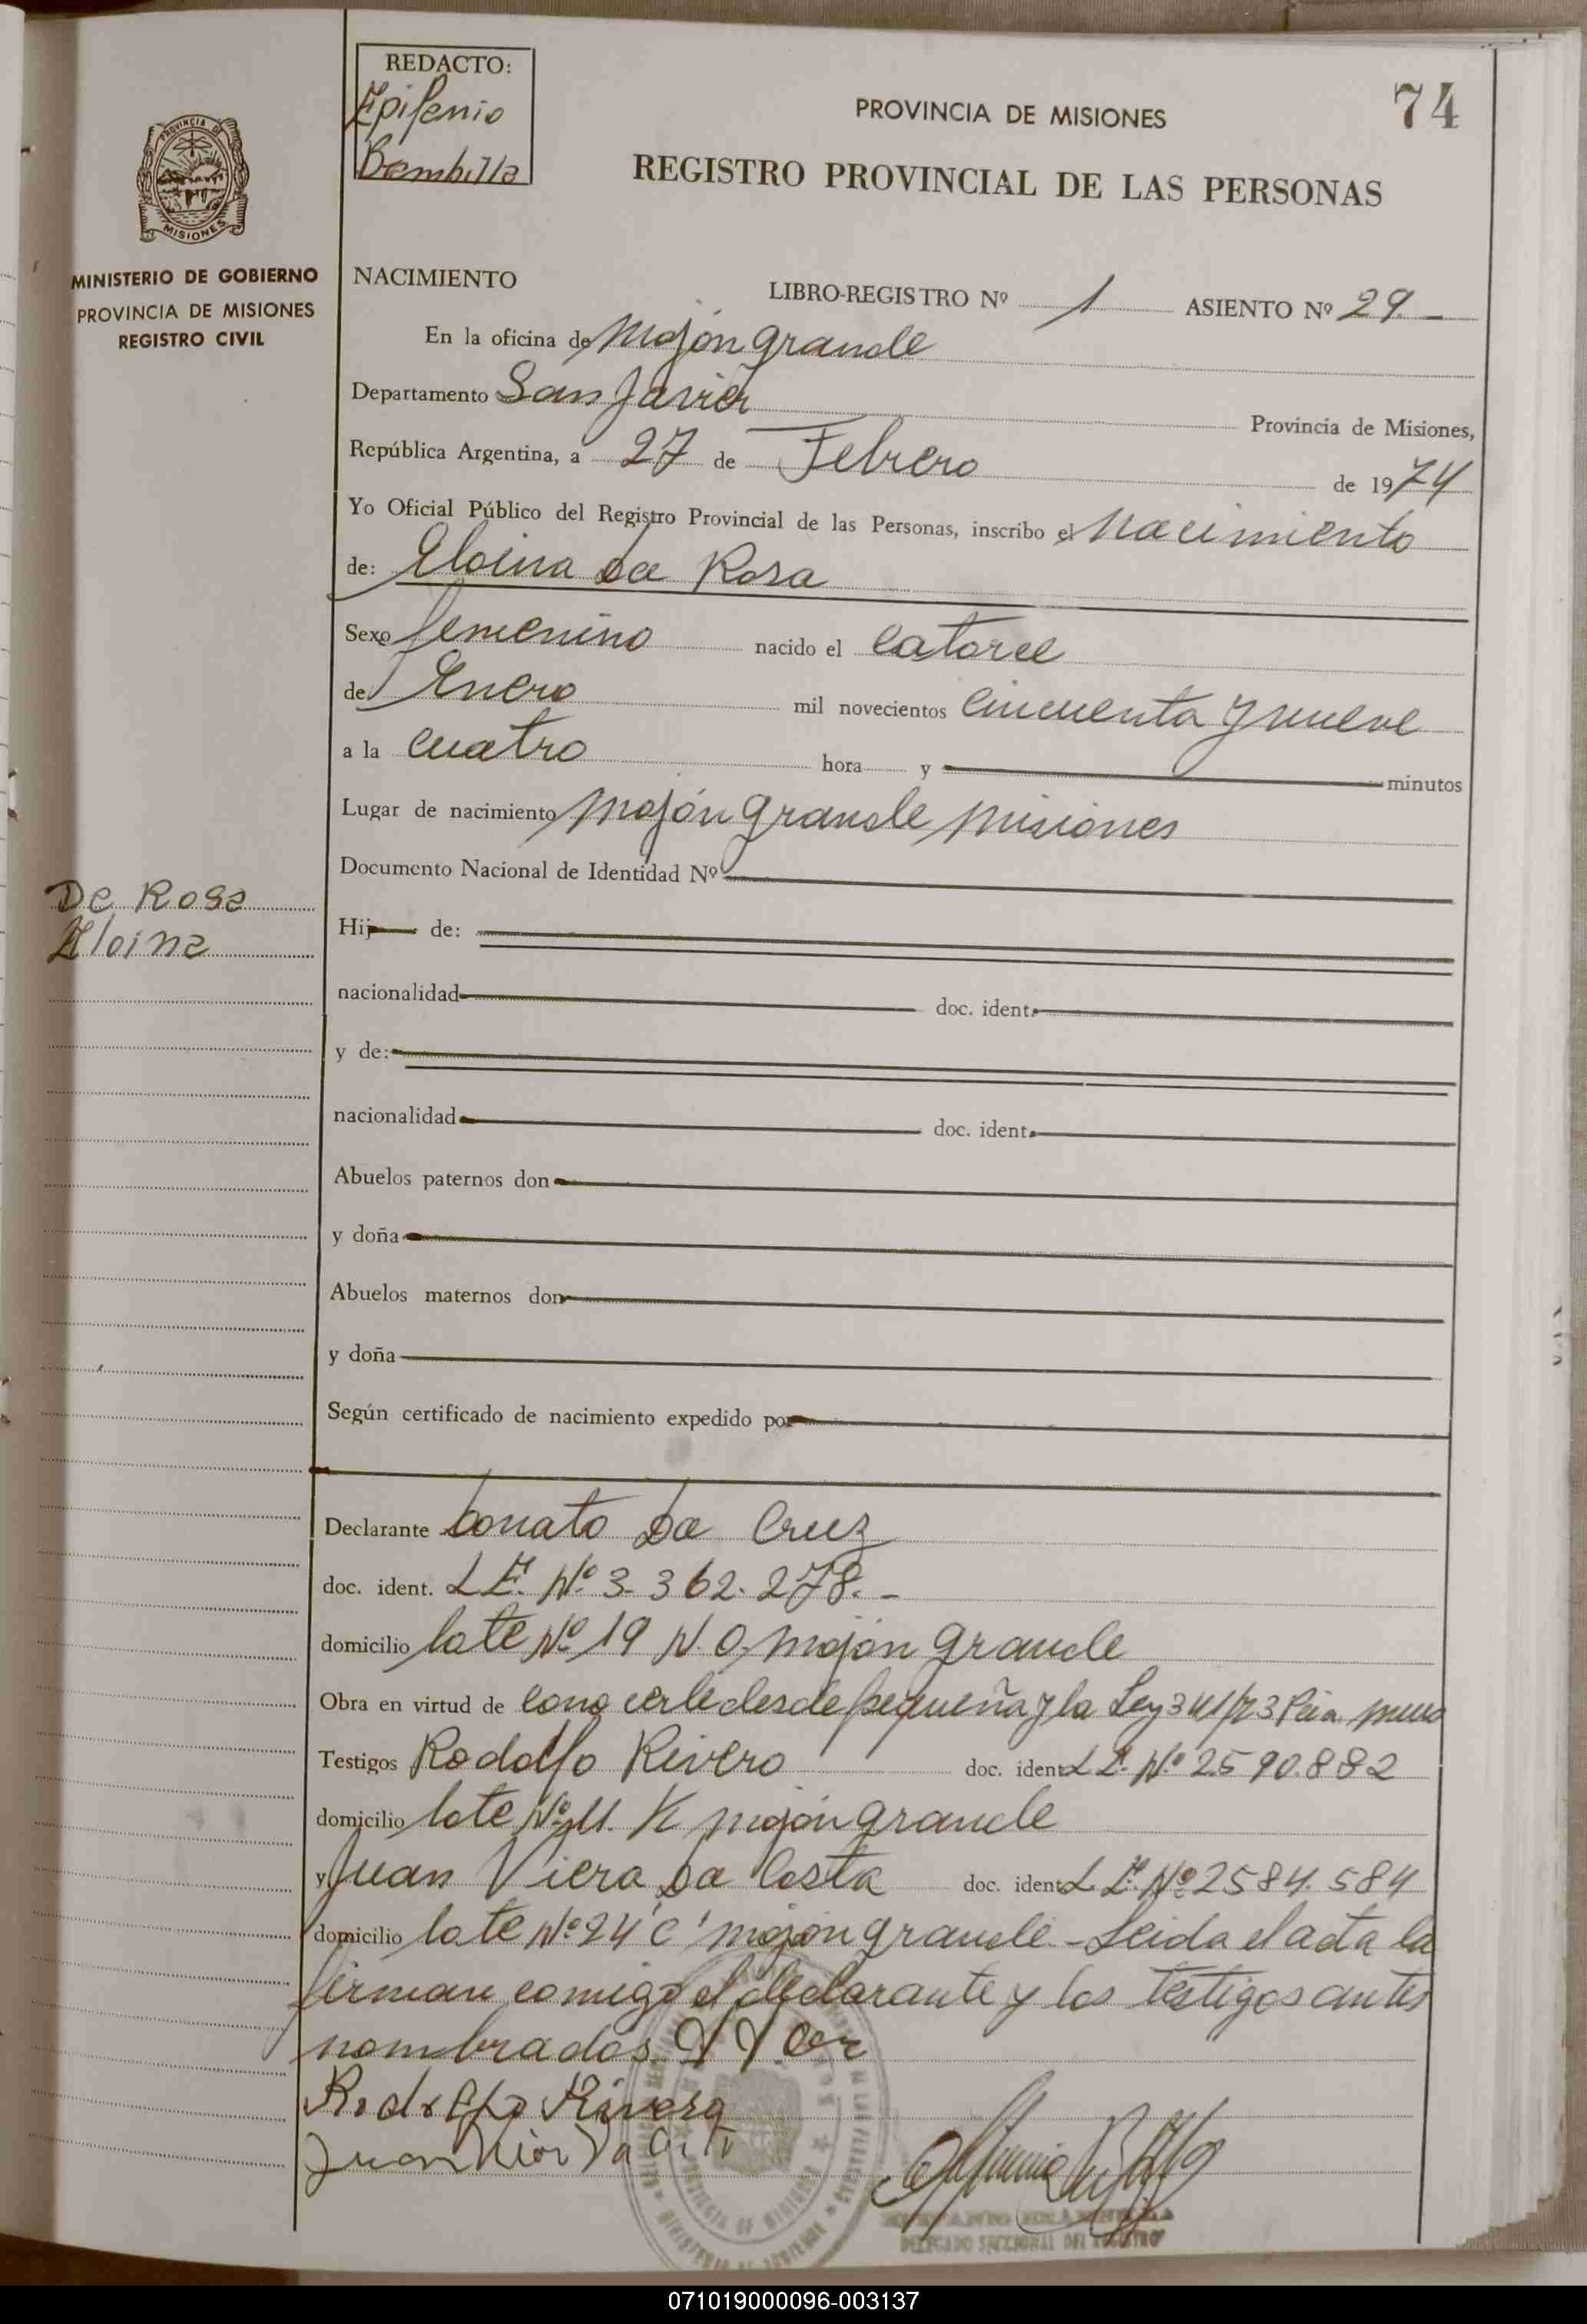 REDACTO:
Epifenio
Bembilla
PROVINCIA DE MISIONES
74
REGISTRO PROVINCIAL DE LAS PERSONAS
PROVINCIA DE
MISIONES
MINISTERIO DE GOBIERNO
PROVINCIA DE MISIONES
REGISTRO CIVIL
NACIMIENTO
LIBRO-REGISTRO Nº 1 ASIENTO Nº 29.-
En la oficina de Mojón grande
Departamento San Javier Provincia de Misiones,
República Argentina, a 27 de Febrero de 1974
Yo Oficial Público del Registro Provincial de las Personas, inscribo el Nacimiento
de: Eloina Da Rosa
Sexo femenino nacido el catorce
de Enero mil novecientos cincuenta y nueve
a la cuatro hora y minutos
Lugar de nacimiento Mojón grande Misiones
Documento Nacional de Identidad Nº
De Rosa
Eloina
Hij de:
nacionalidad doc. ident.
y de:
nacionalidad doc. ident.
Abuelos paternos don
y doña
Abuelos maternos don
y doña
Según certificado de nacimiento expedido por
Declarante Donato Da Cruz
doc. ident. L E. Nº 3.362.278.-
domicilio lote Nº 19 N. O, mojón grande
Obra en virtud de conocerle desde pequeña y la Ley
Testigos Rodolfo Rivero doc. ident. L E. Nº 2590.882
domicilio lote Nº K mojón grande
y Juan Viera Da Costa doc. ident. L E. Nº 2584.584
domicilio lote Nº 24 'C' mojón grande - Leida el acta la
firman comigo el declarante y los testigos antes
nombrados.
Rodolfo Rivero
Juan
DELEGADO SECCIONAL DEL REGISTRO
071019000096-003137